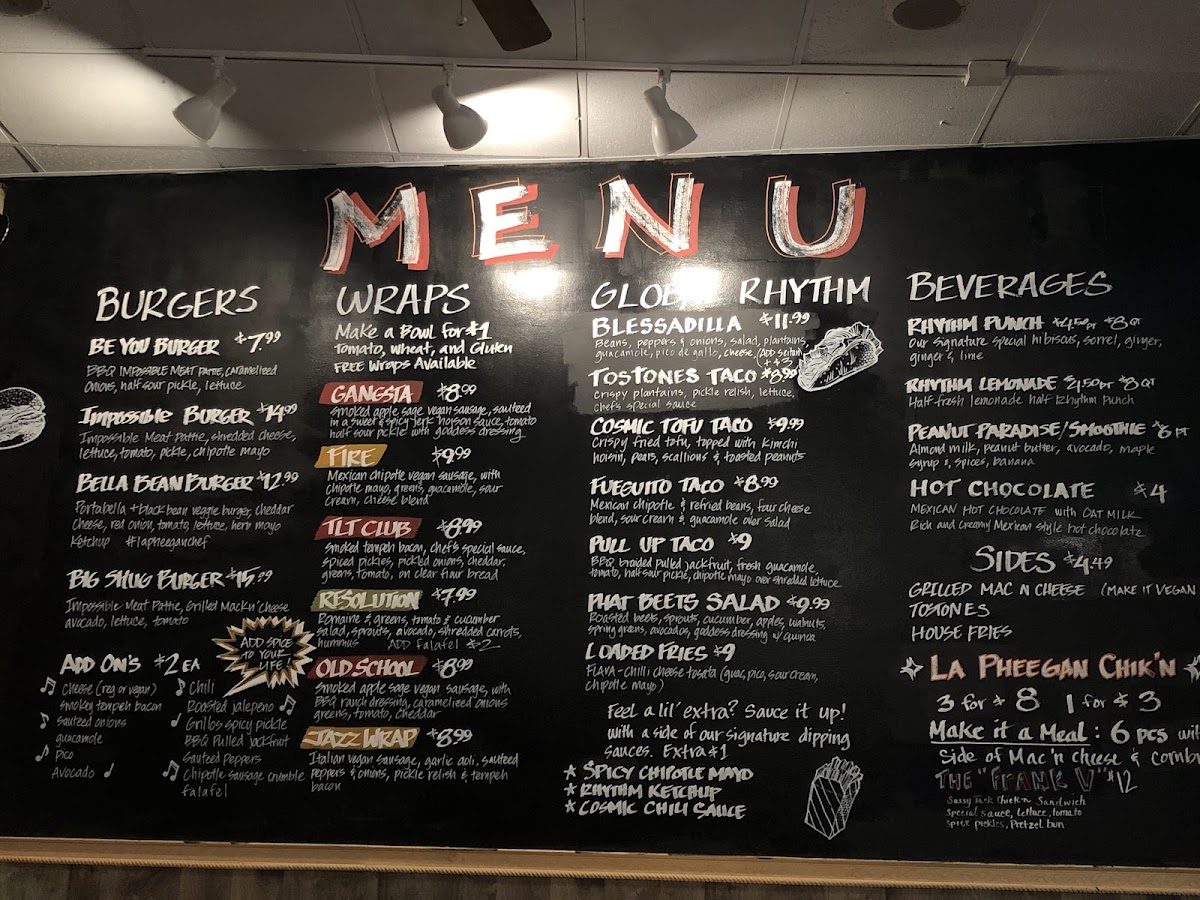 MENU
BURGERS
BE YOU BURGER $7.99
BBQ IMPOSSIBLE MEAT PATTIE, CARAMELIZED
ONIONS, half sour pickle, lettuce
Impossible BURGER $14.99
Impossible Meat Pattie, shredded cheese,
lettuce, tomato, pickle, chipotle mayo
BELLA BEAN BURGER $12.99
Portabella + black bean veggie burger, cheddar
cheese, red onion, tomato, lettuce, herb mayo
Ketchup #lapheeganchef
BIG SHUG BURGER $15.99
Impossible Meat Pattie, Grilled Mack n' Cheese
avocado, lettuce, tomato
ADD SPICE
TO YOUR
LIFE!
ADD ON'S $2 EA
Cheese (reg or vegan)
smokey tempeh bacon
sauteed onions
guacamole
Pico
Avocado
Chili
Roasted jalepeno
Grillos spicy pickle
BBQ Pulled Jackfruit
Sauteed Peppers
Chipotle sausage crumble
falafel
WRAPS
Make a Bowl for $1
Tomato, wheat, and Gluten
FREE Wraps Available
GANGSTA $8.99
smoked apple sage vegan sausage, sauteed
in a sweet & spicy jerk hoison sauce, tomato
half sour pickle with goddess dressing
FIRE $9.99
Mexican chipotle vegan sausage, with
chipotle mayo, greens, guacamole, sour
cream, cheese blend
TLT CLUB $8.99
Smoked tempeh bacon, chef's special sauce,
spiced pickles, pickled onions, cheddar,
greens, tomato, on clear flour bread
RESOLUTION $7.99
Romaine & greens, tomato & cucumber
salad, sprouts, avocado, shredded carrots,
hummus ADD falafel $2
OLD SCHOOL $8.99
Smoked apple sage vegan sausage, with
BBQ ranch dressing, caramelized onions
greens, tomato, cheddar
JAZZ WRAP $8.99
Italian vegan sausage, garlic aoli, sauteed
peppers & onions, pickle relish & tempeh
bacon
GLOBAL RHYTHM
BLESSADILLA $11.99
Beans, peppers & onions, salad, plantains,
guacamole, pico de gallo, cheese /Add Seitan
+$3
TOSTONES TACO $8.99
Crispy plantains, pickle relish, lettuce,
chef's special sauce
COSMIC TOFU TACO $9.99
Crispy fried tofu, topped with kimchi
hoisin, pears, scallions & toasted peanuts
FUEGUITO TACO $8.99
Mexican chipotle & refried beans, four cheese
blend, sour cream & guacamole over salad
PULL UP TACO $9
BBQ braided pulled jackfruit, fresh guacamole,
tomato, half sour pickle, chipotle mayo over shredded lettuce
PHAT BEETS SALAD $9.99
Roasted beets, sprouts, cucumber, apples, walnuts,
spring greens, avocados, goddess dressing w/ quinoa
LOADED FRIES $9
FLAVA - chili cheese tostata (guac, pico, sour cream,
chipotle mayo)
Feel a lil' extra? Sauce it up!
with a side of our signature dipping
sauces. Extra $1
★ SPICY CHIPOTLE MAYO
★ RHYTHM KETCHUP
★ COSMIC CHILI SAUCE
BEVERAGES
RHYTHM PUNCH $4.50 PT $8 QT
Our signature special hibiscus, sorrel, ginger,
ginger & lime
RHYTHM LEMONADE $4.50 PT $8 QT
Half fresh lemonade half Rhythm Punch
PEANUT PARADISE/SMOOTHIE $6 PT
Almond milk, peanut butter, avocado, maple
syrup &, spices, banana
HOT CHOCOLATE $4
MEXICAN HOT CHOCOLATE with OAT MILK
Rich and creamy Mexican style hot chocolate
SIDES $4.49
GRILLED MAC N CHEESE (MAKE IT VEGAN
TOSTONES
HOUSE FRIES
LA PHEEGAN CHIK'N
3 for $8 1 for $3
Make it a Meal: 6 pcs wit
Side of Mac'n cheese & cornbr
THE "FRANK V" $12
Sassy Jack Chick'n Sandwich
Special sauce, lettuce, tomato
Spice pickles, Pretzel bun